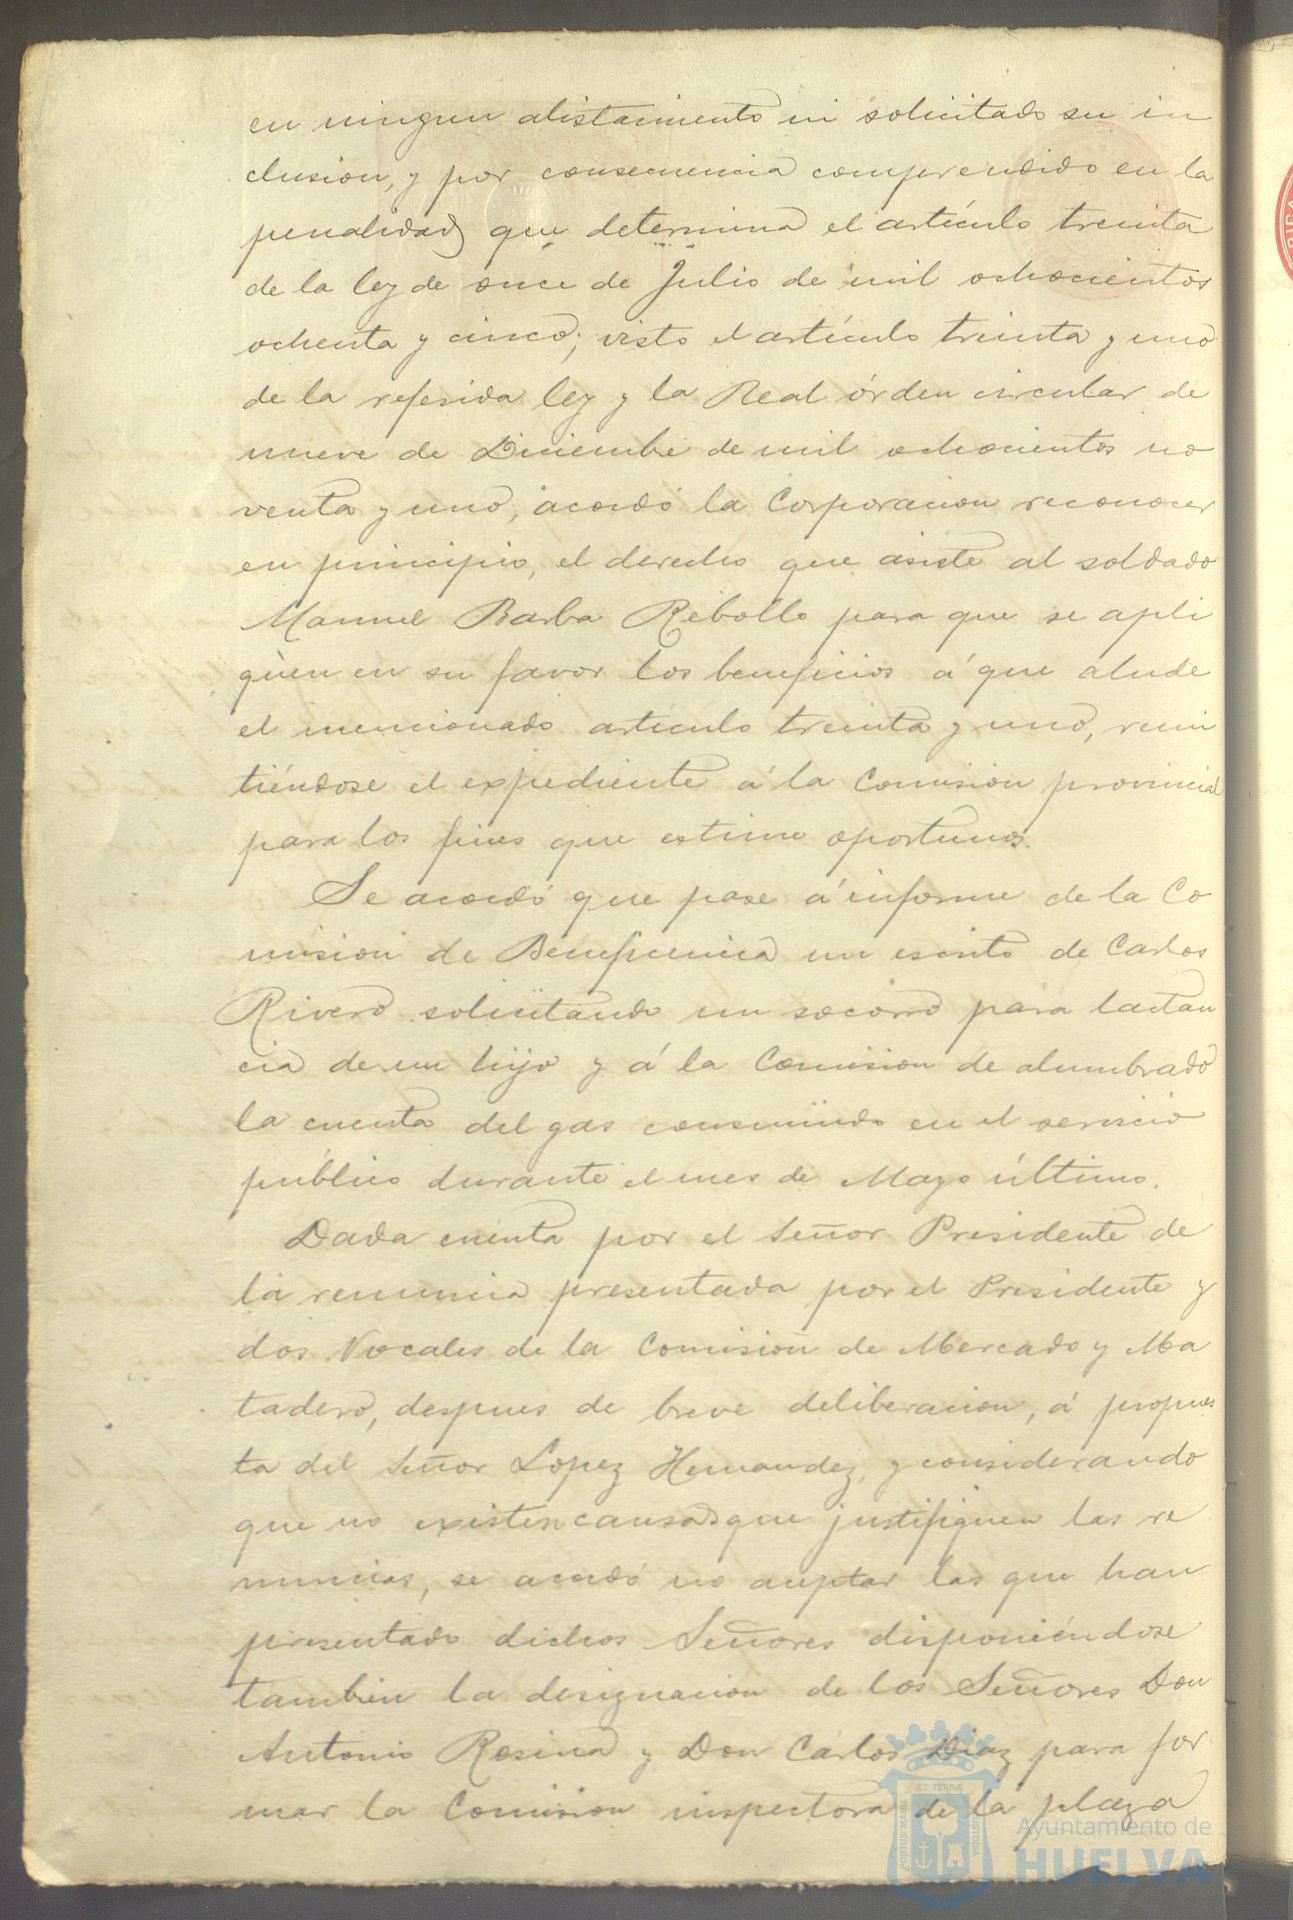 en ningun alistamiento ni solicitado su in
clusion, y por consecuencia comprendido en la
penalidad que determina el artículo treinta
de la ley de once de Julio de mil ochocientos
ochenta y cinco; visto el artículo treinta y uno
de la referida ley y la Real órden circular de
nueve de Diciembre de mil ochocientos no
venta y uno, acordó la Corporacion reconocer
en principio, el derecho que asiste al soldado
Manuel Barba Rebollo para que se apli
quen en su favor los beneficios á que alude
el mencionado articulo treinta y uno, remi
tiéndose el expediente á la Comision provincial
para los fines que estime oportunos.
Se acordó que pase á informe de la Co
mision de Beneficencia un escrito de Carlos
Rivero solicitando un socorro para lactan
cia de un hijo y á la Comision de alumbrado
la cuenta del gas consumido en el servicio
público durante el mes de Mayo último.
Dada cuenta por el Señor Presidente de
la renuncia presentada por el Presidente y
dos Vocales de la Comision de Mercado y Ma
tadero, despues de breve deliberacion, á propues
ta del Señor Lopez Hernandez, y considerando
que no existen causas que justifiquen las re
nuncias, se acordó no aceptar las que han
presentado dichos Señores disponiéndose
tambien la designacion de los Señores Don
Antonio Rosina y Don Carlos Diaz para for
mar la Comision inspectora de la plaza
ET TERRÆ
PORTUS MARIS
CUSTODIA
Ayuntamiento de
HUELVA